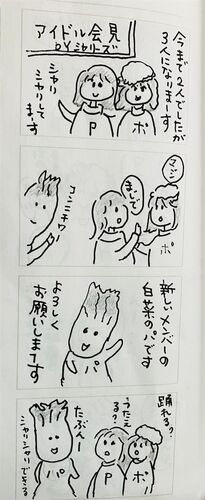 アイドル会見
byシャリーズ
今まで2人でしたが
3人になります
シャリ
シャリして
まーす
P
ポ
マジン
まじで
コンニチワー
ポ
新しいメンバーの
白菜のパです
よろしく
お願いしまーす
パ
踊れる?
うたえ
る?
たぶんー
シャリシャリできる
パ
P
ポ